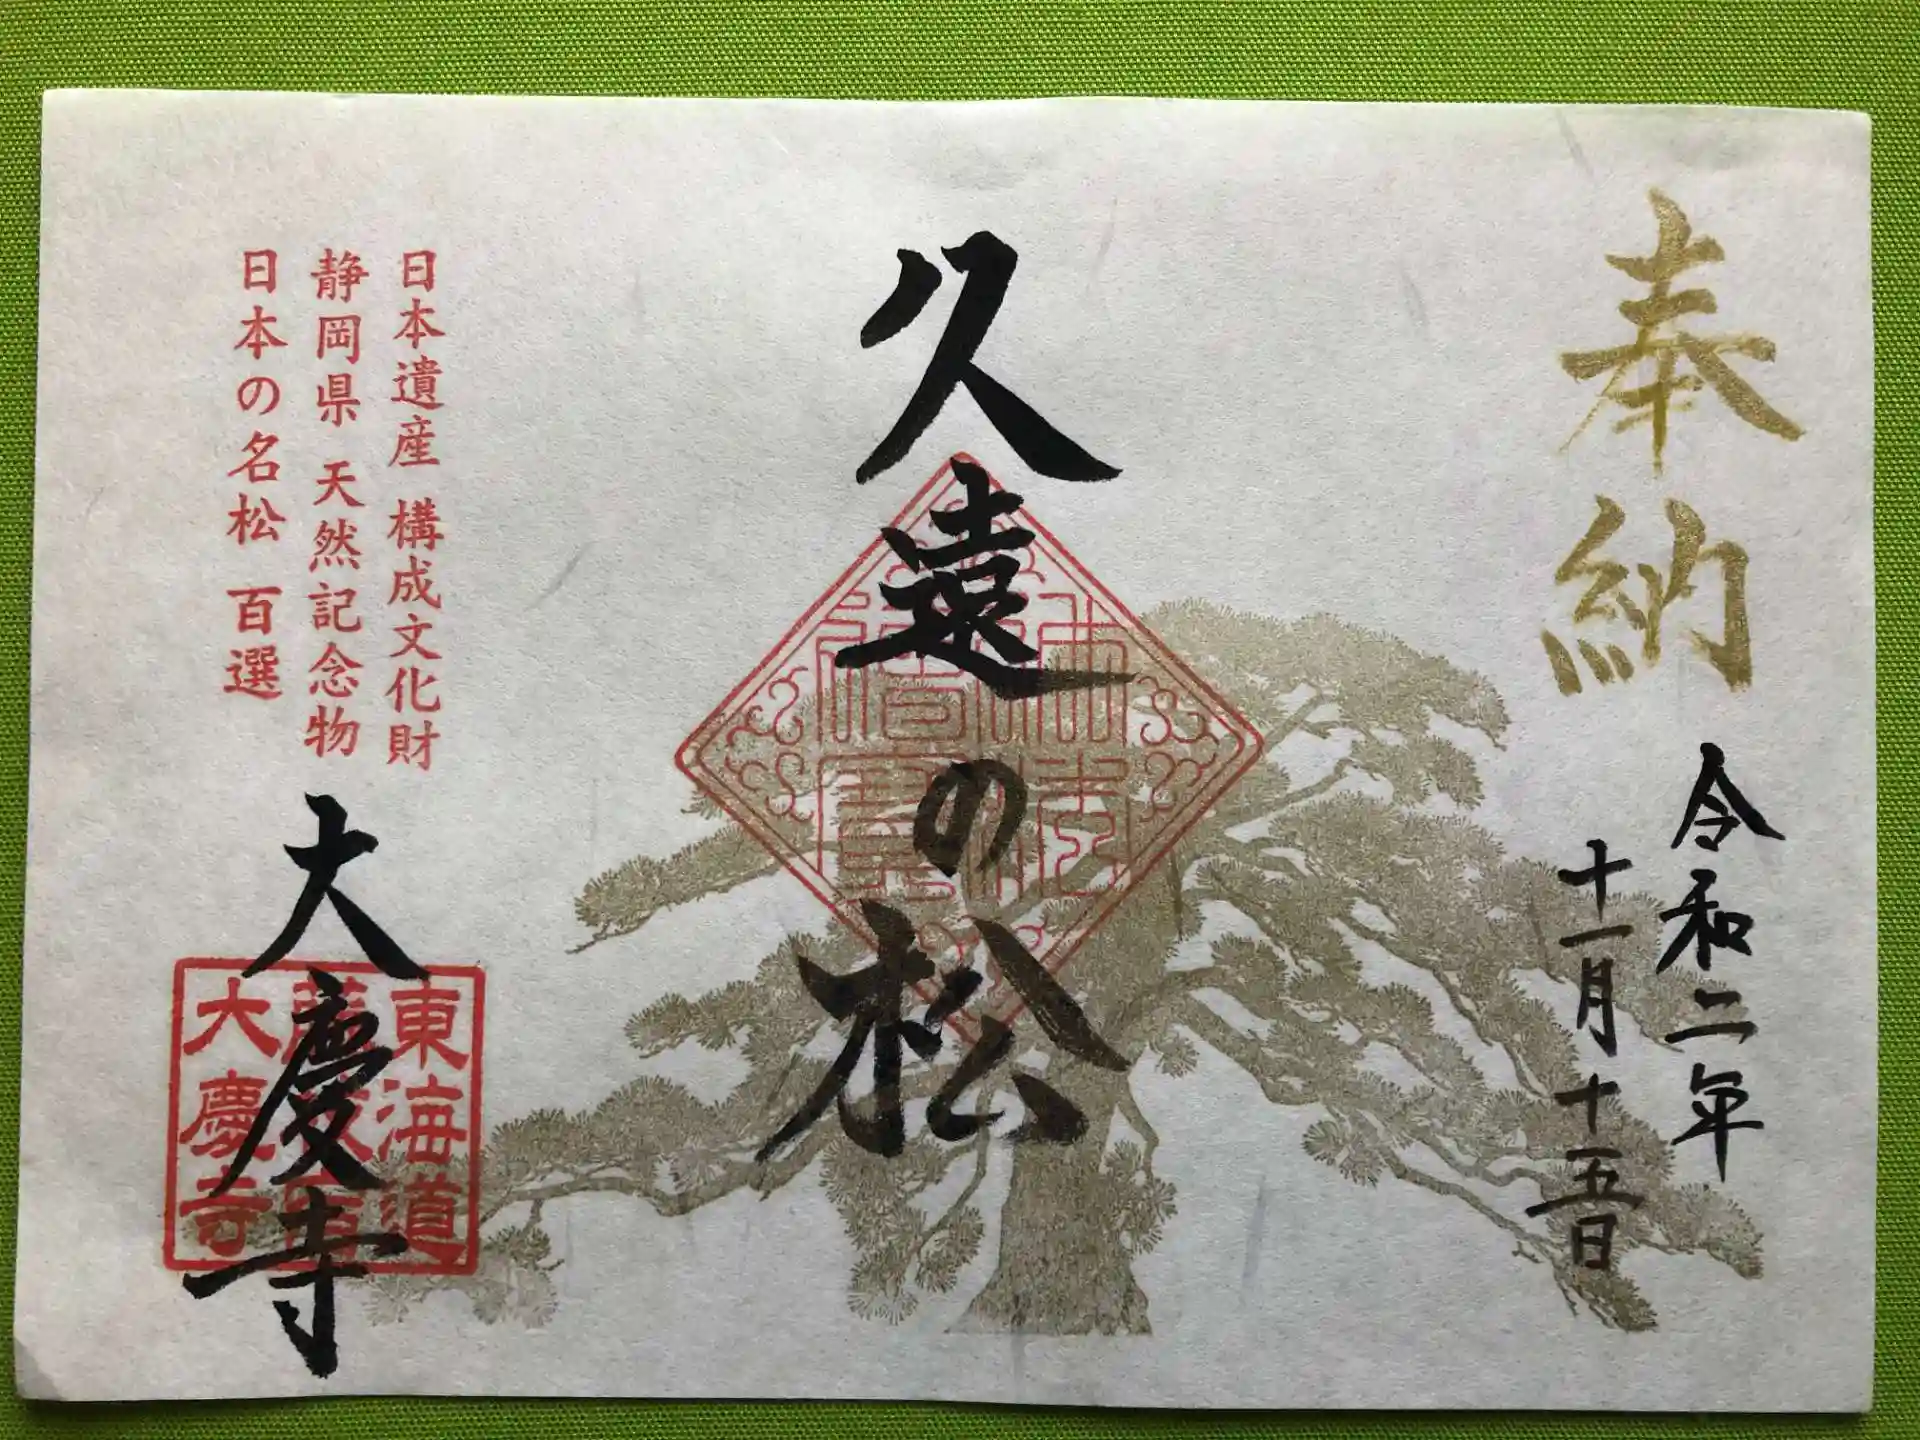 奉納
令和二年
十一月十五日
久遠の松
日本遺産 構成文化財
静岡県 天然記念物
日本の名松 百選
大慶寺
東海道
藤枝宿
大慶寺